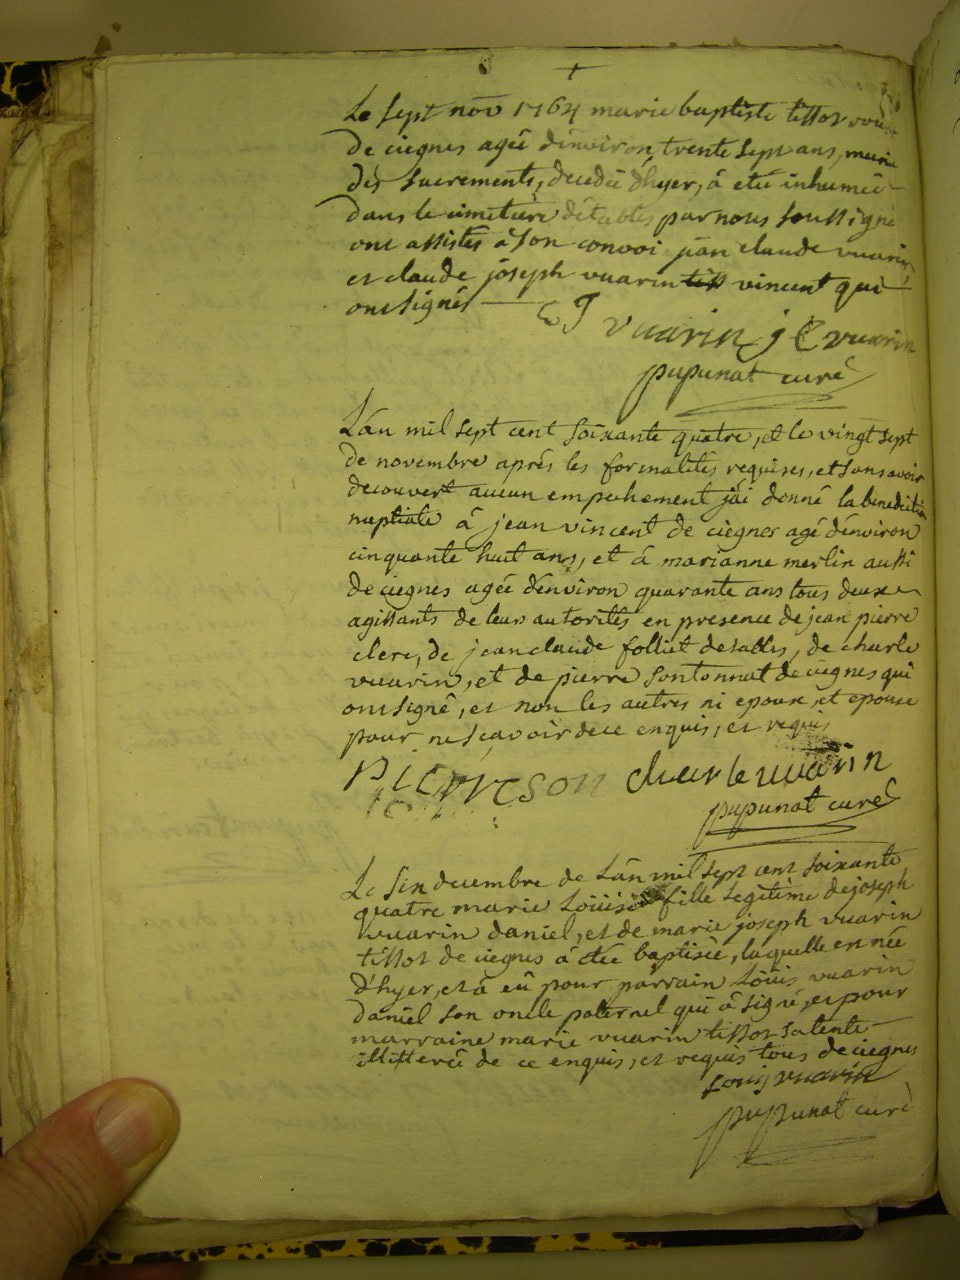 Le sept nov 1764 marie baptiste tissot
de ciegnes agée d'environ trente sept ans, munie
des sacrements, decedée d'hyer, à etée inhumée
dans le cimetiere d'etables par nous soussigné
ont assistés à son convoi jean claude vuarin
et claude joseph vuarin tiss vincent qui
ont signés
C J vuarin j C vuarin
pupunat curé
L'an mil sept cent soixante quatre, et le vingt sept
de novembre aprés les formalités requises, et sans avoir
decouvert aucun empechement j'ai donné la benediction
nuptiale à jean vincent de ciegnes agé d'environ
cinquante huit ans, et à marianne merlin aussi
de ciegnes agée d'environ quarante ans tous deux
agissants de leurs autorités en presence de jean pierre
clerc, de jean claude folliet detables, de charle
vuarin, et de pierre sontonnat de ciegnes qui
ont signé, et non les autres ni epoux, et epouse
pour ne sçavoir de ce enquis, et requis
Pierre son charle vuarin
pupunat curé
Le six decembre de L'an mil sept cent soixante
quatre marie Loüise fille legitime de joseph
vuarin daniel, et de marie joseph vuarin
tissot de ciegnes à etée baptisée, laquelle en née
d'hyer, et à eû pour parrain Loüis vuarin
daniel son oncle paternel qui à signé, et pour
marraine marie vuarin tissot sa tente
illitterée de ce enquis, et requis tous de ciegnes
Louis vuarin
pupunat curé